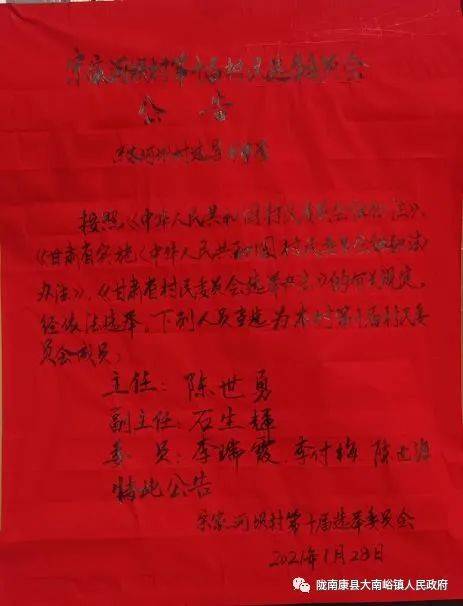 宋家河坝村第十届村民选举委员会
公告
按照《中华人民共和国村民委员会组织法》、
《甘肃省实施〈中华人民共和国村民委员会组织法〉
办法》、《甘肃省村民委员会选举办法》的有关规定,
经依法选举,下列人员当选为本村第十届村民委
员会成员:
主任:陈世勇
副主任:石生辉
委员:李瑞霞、李付梅、陈
特此公告
宋家河坝村第十届选举委员会
2021年1月28日
陇南康县大南峪镇人民政府